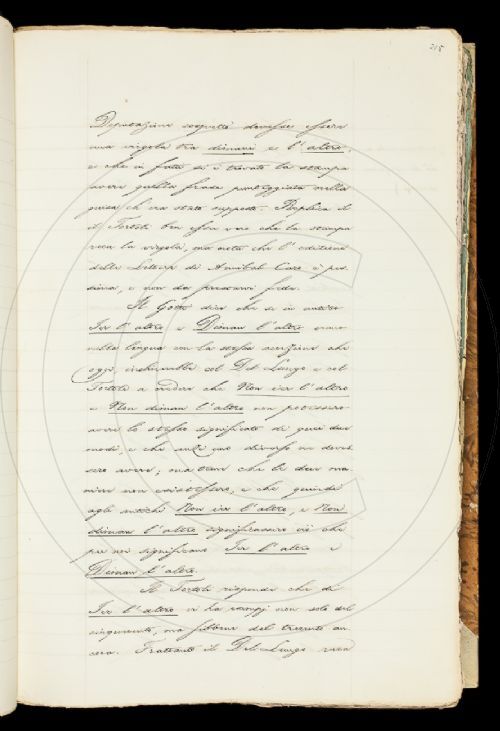 215
Deputazione sospettò dovesse essere
una virgola tra dimani e l'altro,
e che in fatto si è trovata la stampa
avere quella frase punteggiata nella
guisa ch'era stato supposto. Replica il
il Tortoli ben esser vero che la stampa
reca la virgola, ma nota che l'edizione
delle Lettere di Annibal Caro è pes-
sima, e non da prestarvi fede.
Il Gotti dice che se in antico
Ier l'altro e Diman l'altro erano
nella lingua con la stessa accezione che
oggi, inchinerebbe col Del Lungo e col
Tortoli a creder che Non ier l'altro
e Non diman l'altro non potessero
avere lo stesso significato di quei due
modi, e che anzi uno diverso ne doves-
sero avere; ma teme che le due ma-
niere non esistessero, e che quindi
agli antichi Non ier l'altro, e Non
diman l'altro significassero ciò che
per noi significano Ier l'altro e
Diman l'altro.
Il Tortoli risponde che di
Ier l'altro vi ha esempj non solo del
cinquecento, ma fors'anco del trecento an-
cora. Frattanto il Del Lungo reca